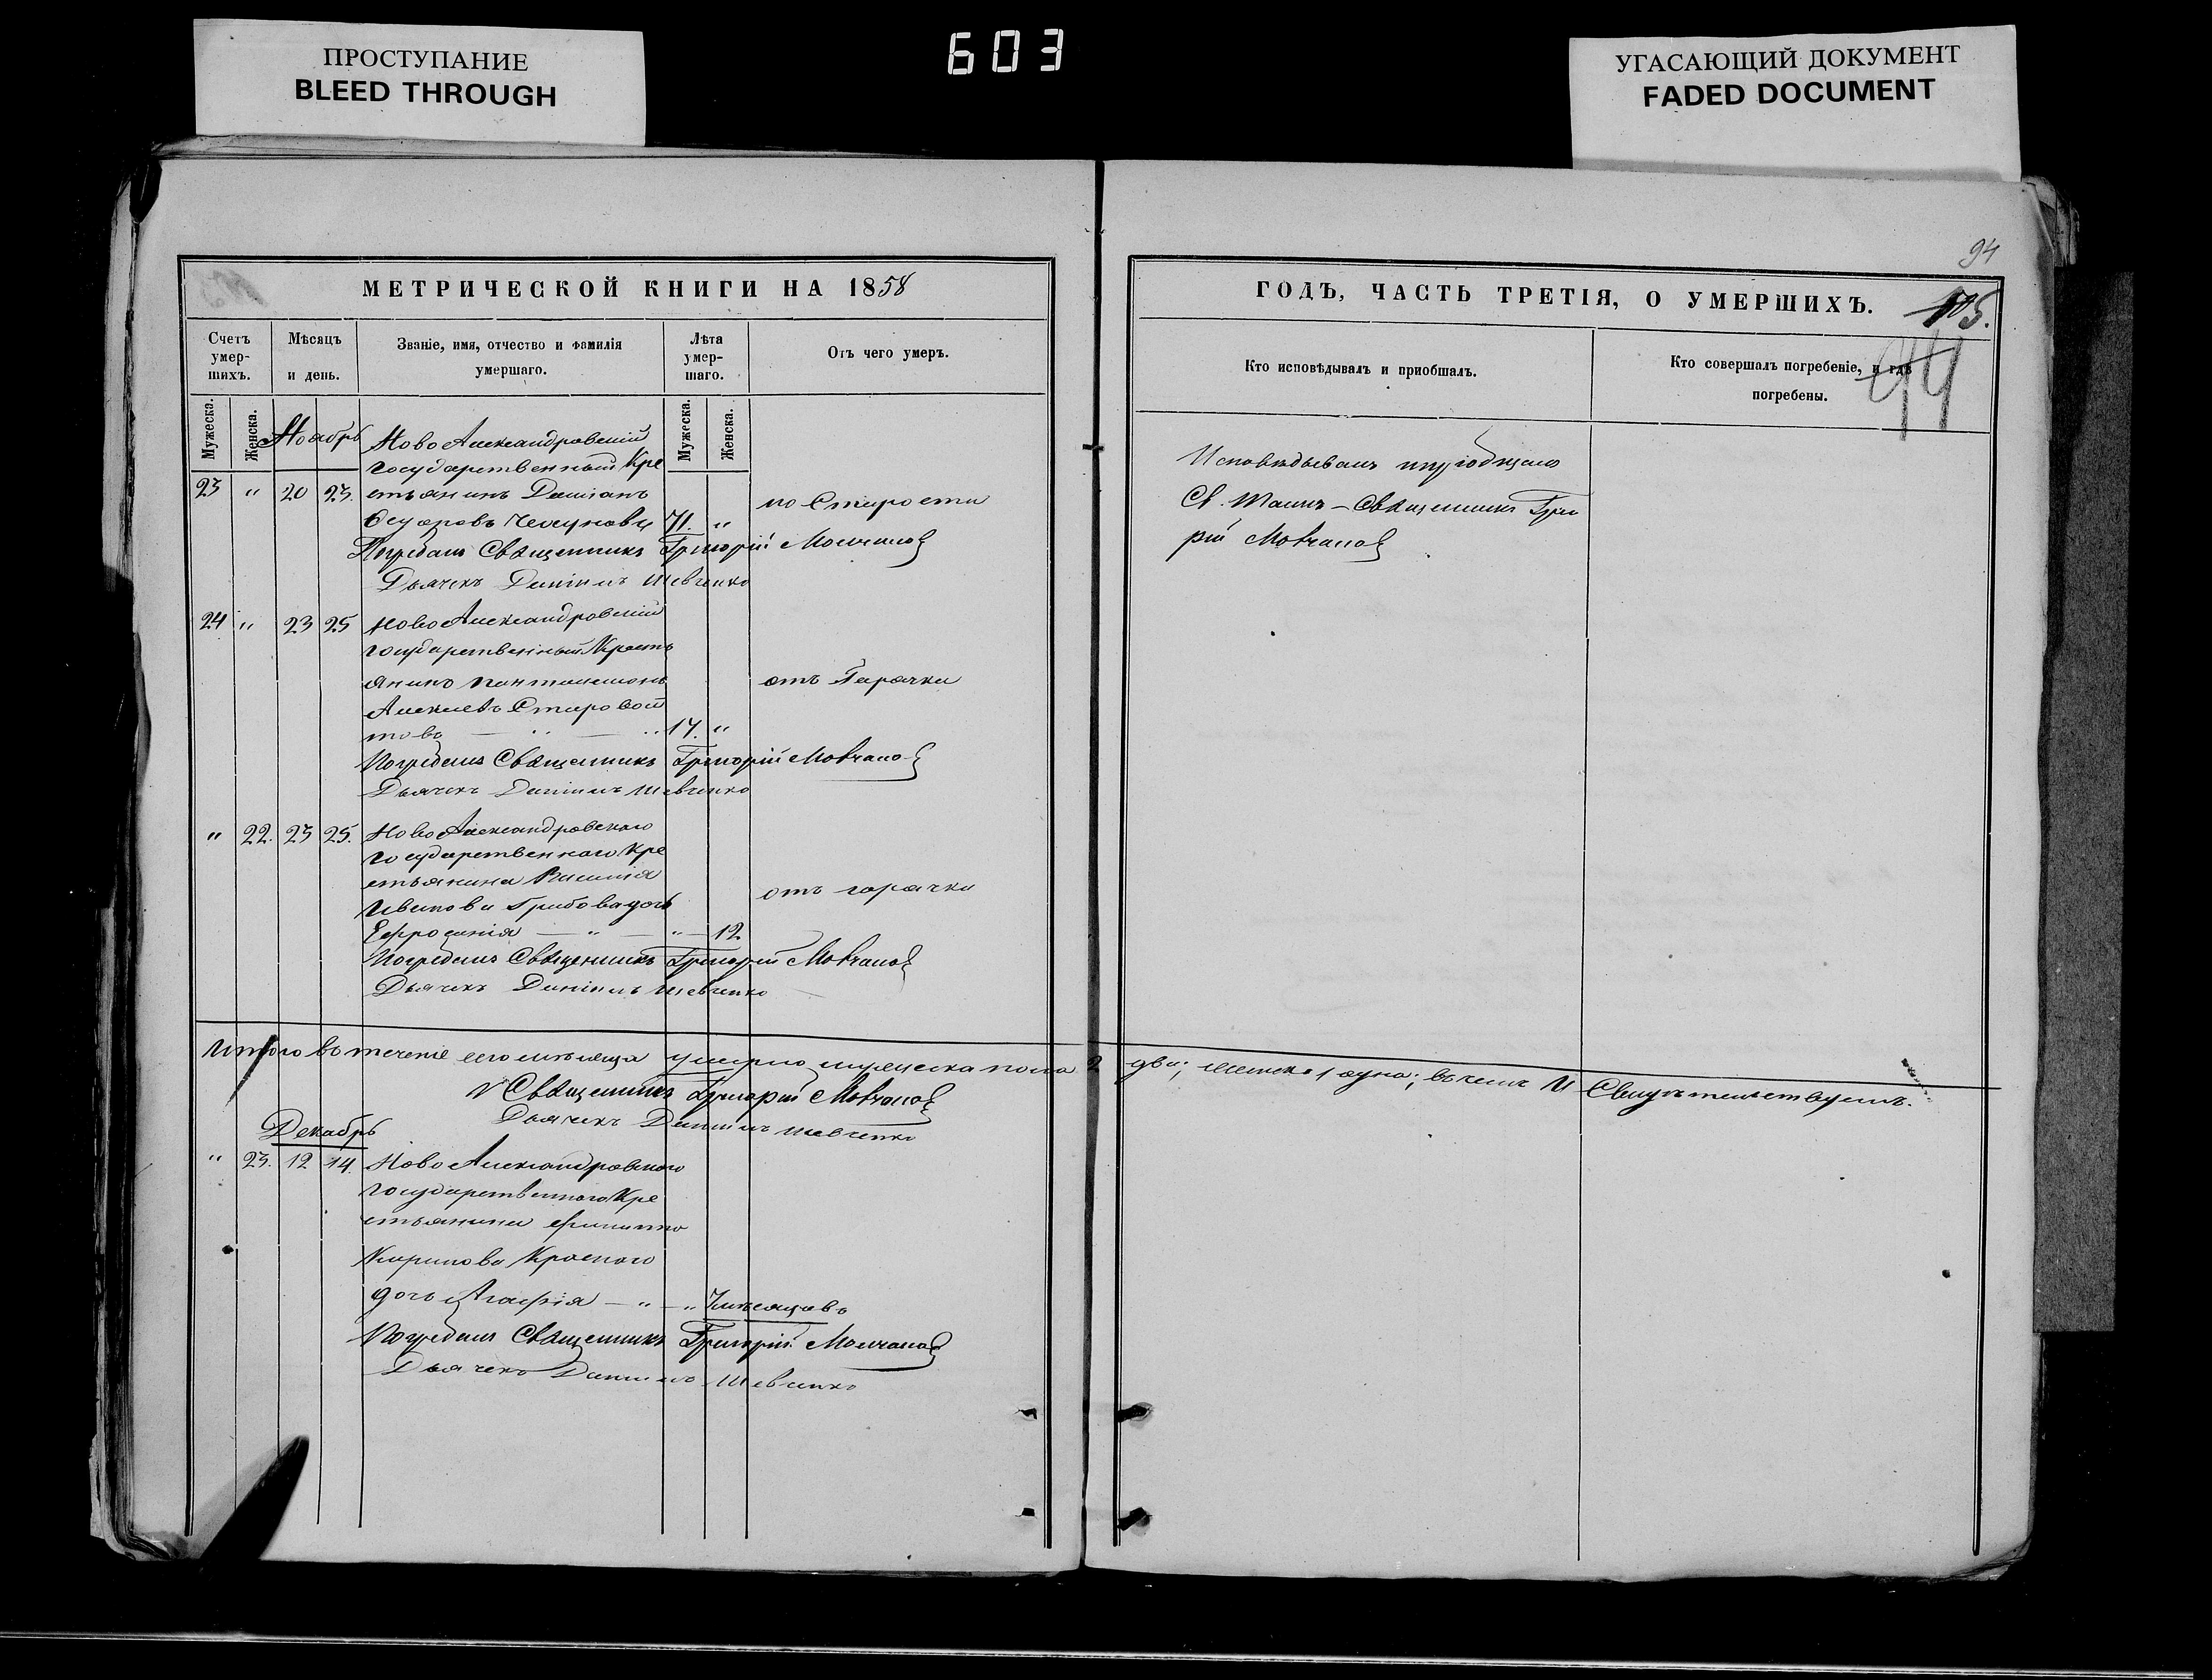 ПРОСТУПАНИЕ
BLEED THROUGH
603
УГАСАЮЩИЙ ДОКУМЕНТ
FADED DOCUMENT
94
МЕТРИЧЕСКОЙ КНИГИ НА 1858
ГОДЪ, ЧАСТЬ ТРЕТІЯ, О УМЕРШИХЪ.
105.
94
Счетъ умер-шихъ.
Мѣсяцъ и день.
Званіе, имя, отчество и фамилія умершаго.
Лѣта умер-шаго.
Отъ чего умеръ.
Кто исповѣдывалъ и приобщалъ.
Кто совершалъ погребеніе, и гдѣ погребены.
Мужеска.
Женска.
Мужеска.
Женска.
Ноабрь
Ново Александровскій
государственный Кре
23 " 20 23. стьянинъ Даміанъ
71. "
по Старости
Погребалъ Священникъ Григорій Молчановъ
Дьячекъ Даніилъ Шевченко
Исповѣдывалъ
Св. Таинъ – Священникъ Григо
рій Мовчановъ
24 " 23 25 Ново Александровскій
государственный Кресть
янинъ Пантилимонъ
Алексѣевъ Старовой
товъ — " — " 17. "
отъ Гарячки
Погребалъ Священникъ Григорій Мовчановъ
Дьячекъ Даніилъ Шевченко
" 22. 23 25. Ново Александровскаго
государственнаго Кре
стьянина
Иванова Грибова дочь
Ефросинія — " — " — 12
отъ горячки
Погребалъ Священникъ Григорій Мовчановъ
Дьячекъ Даніилъ Шевченко
Итого въ теченіе сего мѣсяца умерло мужеска пола 2 два; женска 1 одна; въ чемъ И Свидѣтельствуемъ.
Священникъ Григорій Мовчановъ
Дьячекъ Даніилъ Шевченко
Декабрь
" 23. 12 14. Ново Александровскаго
государственнаго Кре
стьянина Филиппа
Кирилова Краснаго
дочь Агафія — " — " мѣсяцовъ
Погребалъ Священникъ Григорій Молчановъ
Дьячекъ Даніилъ Шевченко